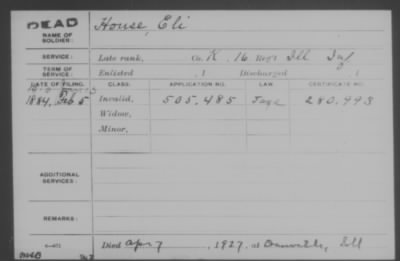 DEAD
NAME OF SOLDIER: House, Eli
SERVICE: Late rank, Co. K, 16 Reg't Ill Inf
TERM OF SERVICE: Enlisted , 1 Discharged , 1
DATE OF FILING. CLASS. APPLICATION NO. LAW. CERTIFICATE NO.
1884, Feb 5 Invalid, 505.485 280.993
Widow,
Minor,
ADDITIONAL SERVICES:
REMARKS:
Died Apr 7, 1927, at Danville, Ill